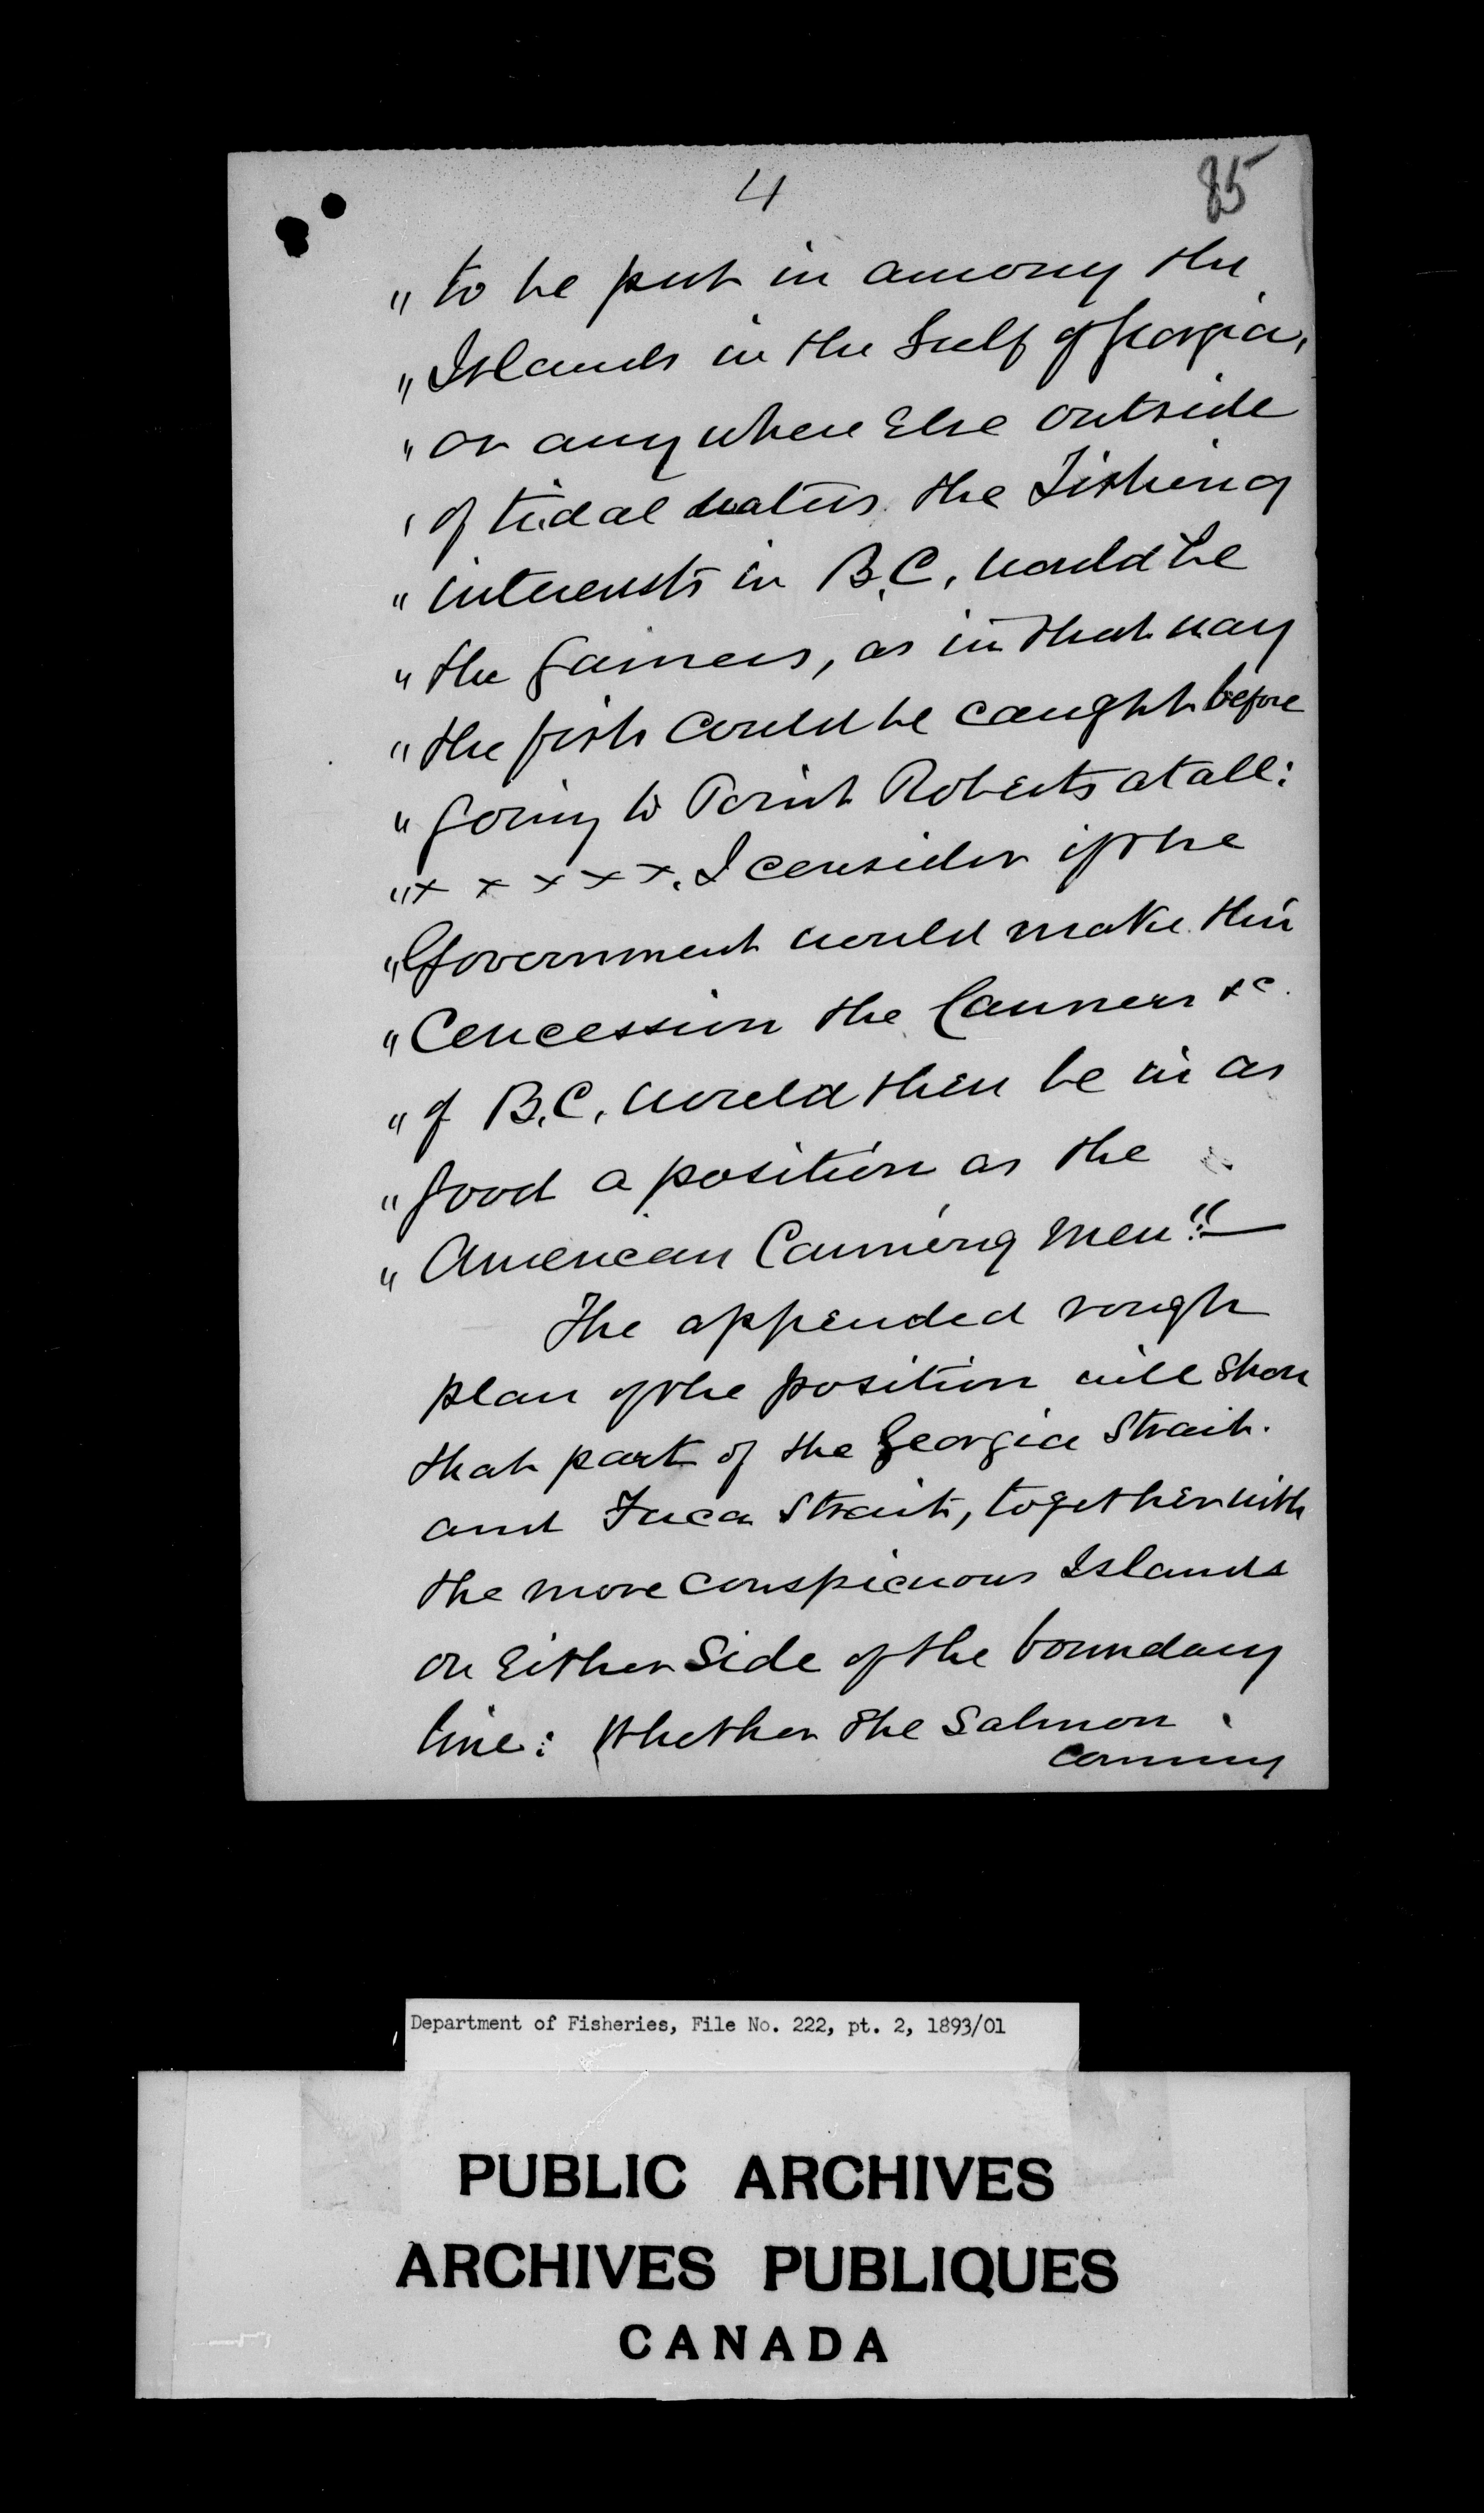 4
85
" to be put in among the
" Islands in the Gulf of Georgia,
" or any where Else outside
" of tidal waters the Fishing
" interests in B.C. would be
" the gainers, as in that way
" the fish could be caught before
" going to Point Roberts at all:
" x x x x x. I consider if the
" Government would make this
" Concession the Canners &c.
" of B.C. would then be in as
" good a position as the
" American Canning men".—
The appended rough
plan of the position will show
that part of the Georgia Strait.
and Fuca Strait, together with
the more conspicuous Islands
on Either Side of the boundary
line: Whether the Salmon
coming
Department of Fisheries, File No. 222, pt. 2, 1893/01
PUBLIC ARCHIVES
ARCHIVES PUBLIQUES
CANADA